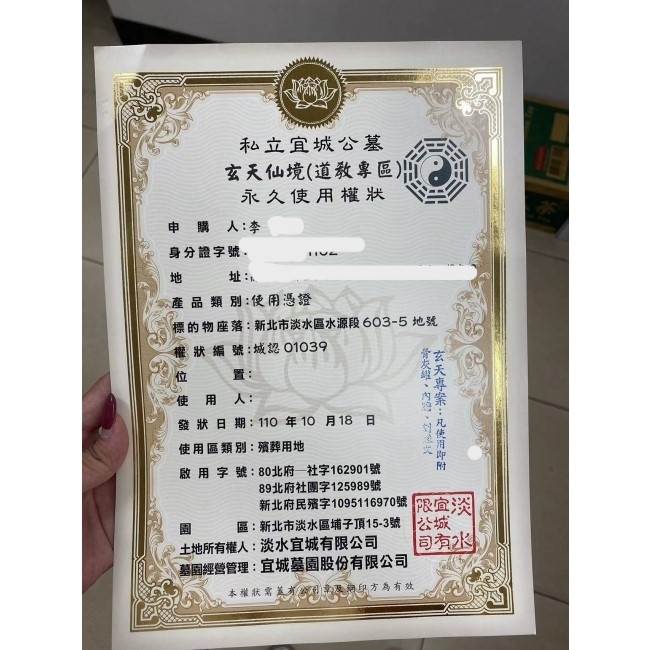 私立宜城公墓
玄天仙境(道教專區)
永久使用權狀
申購人:李
身分證字號:
地址:
產品類別:使用憑證
標的物座落:新北市淡水區水源段603-5地號
權狀編號:城認01039
位置:
使用人:
發狀日期:110年10月18日
使用區類別:殯葬用地
啟用字號:80北府一社字162901號
89北府社團字125989號
新北府民殯字1095116970號
園區:新北市淡水區埔子頂15-3號
土地所有權人:淡水宜城有限公司
墓園經營管理:宜城墓園股份有限公司
本權狀需蓋有公司章及鋼印方為有效
玄天專案:凡使用即附
骨灰罐、內膽、刻經文
淡水
宜城有
限公司